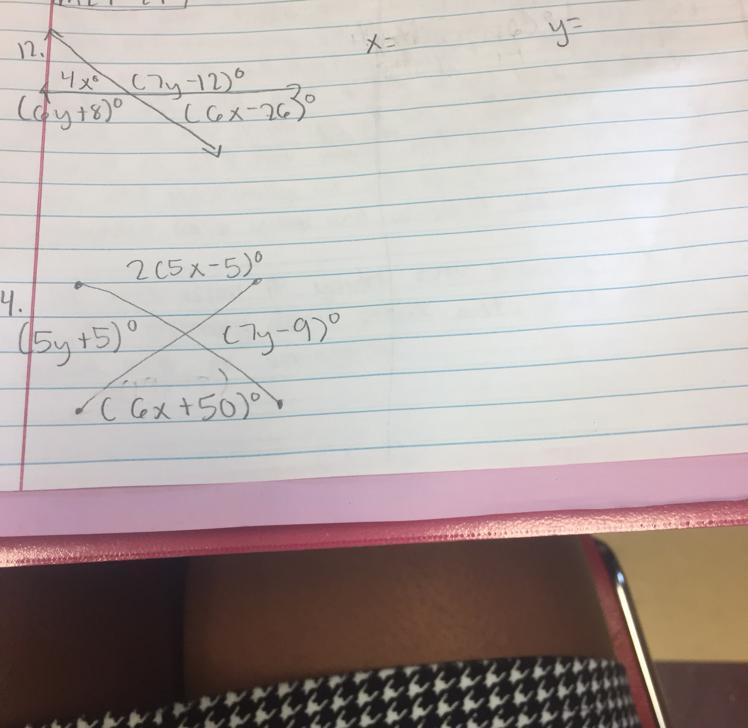 12.
x=
y=
4x° (7y-12)°
(6y+8)° (6x-26)°
4.
2(5x-5)°
(5y+5)° (7y-9)°
(6x+50)°